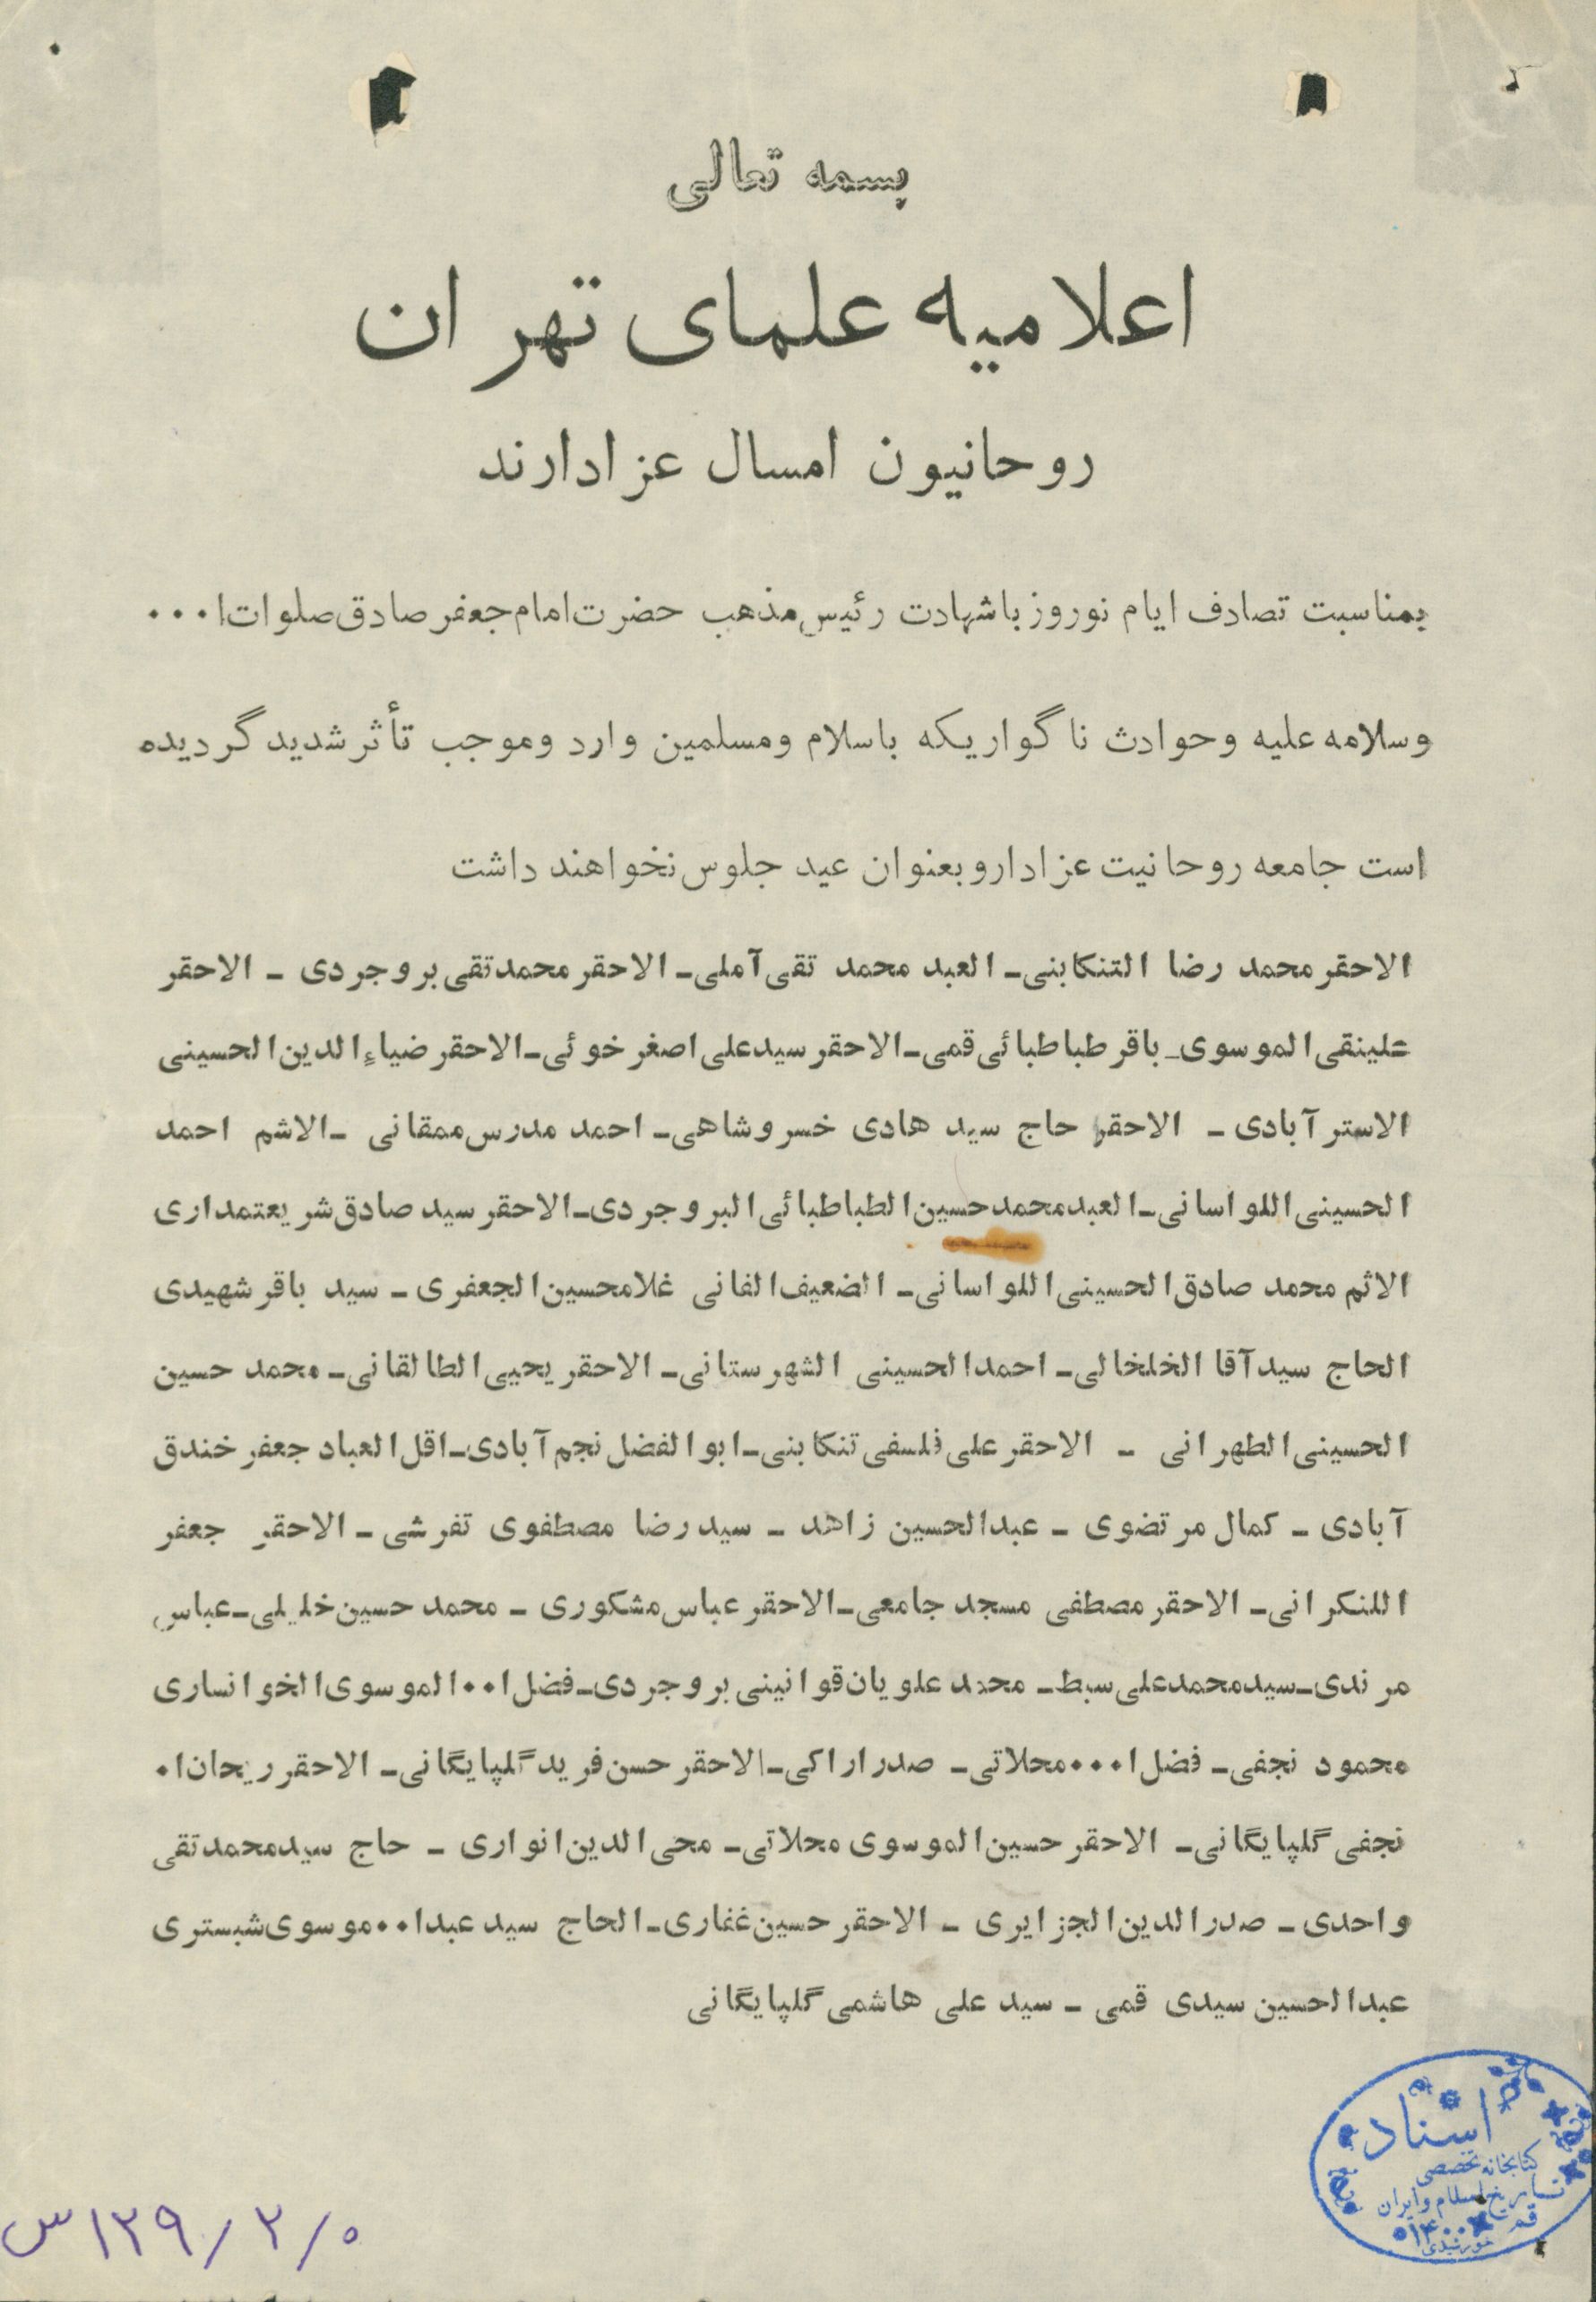 بسمه تعالی
اعلامیه علمای تهران
روحانیون امسال عزادارند
بمناسبت تصادف ایام نوروز باشهادت رئیس مذهب حضرت امام جعفر صادق صلوات ا...
وسلامه علیه وحوادث ناگواریکه باسلام ومسلمین وارد وموجب تأثر شدید گردیده
است جامعه روحانیت عزادار و بعنوان عید جلوس نخواهند داشت
الاحقر محمد رضا التنکابنی ـ العبد محمد تقی آملی ـ الاحقر محمدتقی بروجردی ـ الاحقر
علینقی الموسوی ـ باقر طباطبائی قمی ـ الاحقر سیدعلی اصغر خوئی ـ الاحقر ضیاءالدین الحسینی
الاسترآبادی ـ الاحقر حاج سید هادی خسروشاهی ـ احمد مدرس ممقانی ـ الاشم احمد
الحسینی اللواسانی ـ العبد محمدحسین الطباطبائی البروجردی ـ الاحقر سید صادق شریعتمداری
الاثم محمد صادق الحسینی اللواسانی ـ الضعیف الفانی غلامحسین الجعفری ـ سید باقر شهیدی
الحاج سید آقا الخلخالی ـ احمد الحسینی الشهرستانی ـ الاحقر یحیی الطالقانی ـ محمد حسین
الحسینی الطهرانی ـ الاحقر علی فلسفی تنکابنی ـ ابوالفضل نجم آبادی ـ اقل العباد جعفر خندق
آبادی ـ کمال مرتضوی ـ عبدالحسین زاهد ـ سید رضا مصطفوی تفرشی ـ الاحقر جعفر
اللنکرانی ـ الاحقر مصطفی مسجد جامعی ـ الاحقر عباس مشکوری ـ محمد حسین خلیلی ـ عباس
مرندی ـ سیدمحمدعلی سبط ـ محمد علویان قوانینی بروجردی ـ فضل ا.. الموسوی الخوانساری
محمود نجفی ـ فضل ا... محلاتی ـ صدر اراکی ـ الاحقر حسن فرید گلپایگانی ـ الاحقر ریحان ا.
نجفی گلپایگانی ـ الاحقر حسین الموسوی محلاتی ـ محی الدین انواری ـ حاج سیدمحمدتقی
واحدی ـ صدرالدین الجزایری ـ الاحقر حسین غفاری ـ الحاج سید عبدا.. موسوی شبستری
عبدالحسین سیدی قمی ـ سید علی هاشمی گلپایگانی
اسناد
کتابخانه تخصصی
تاریخ اسلام و ایران
قم
۱۴۰۰
خورشیدی
۱۲۹/۲/۰س